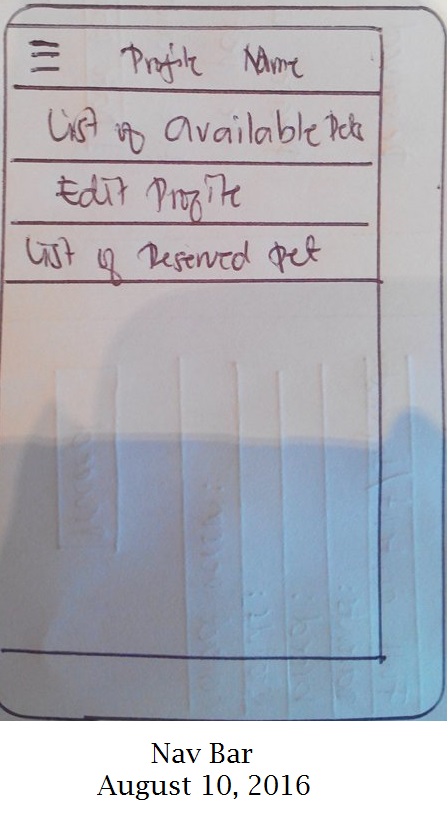 Profile Name
List of available Pets
Edit Profile
List of Reserved pet
Nav Bar
August 10, 2016